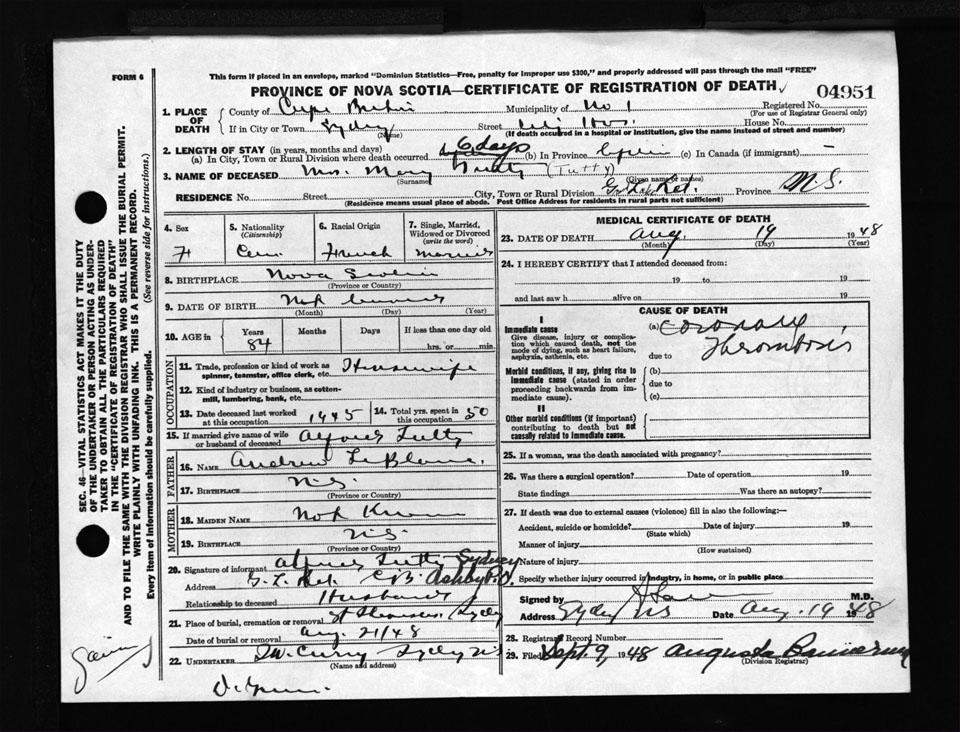 FORM 6
This form if placed in an envelope, marked "Dominion Statistics—Free, penalty for improper use $300," and properly addressed will pass through the mail "FREE"
PROVINCE OF NOVA SCOTIA—CERTIFICATE OF REGISTRATION OF DEATH
04951
1. PLACE OF DEATH
County of Cape Breton Municipality of No 1 Registered No.
(For use of Registrar General only)
If in City or Town Sydney Street City Hos. House No.
(Name) (If death occurred in a hospital or institution, give the name instead of street and number)
2. LENGTH OF STAY (in years, months and days)
(a) In City, Town or Rural Division where death occurred 6 days (b) In Province (c) In Canada (if immigrant) —
3. NAME OF DECEASED Mrs. Mary Tutty (Tutty)
(Surname) (Given name or names)
RESIDENCE No. Street City, Town or Rural Division Province N.S.
(Residence means usual place of abode. Post Office Address for residents in rural parts not sufficient)
4. Sex
F
5. Nationality
(Citizenship)
Can.
6. Racial Origin
French
7. Single, Married, Widowed or Divorced
(write the word)
Married
8. BIRTHPLACE Nova Scotia
(Province or Country)
9. DATE OF BIRTH Not
(Month) (Day) (Year)
10. AGE in
Years Months Days If less than one day old
84 hrs. or min.
OCCUPATION
11. Trade, profession or kind of work as spinner, teamster, office clerk, etc. Housewife
12. Kind of industry or business, as cotton-mill, lumbering, bank, etc.
13. Date deceased last worked at this occupation 1945
14. Total yrs. spent in this occupation 50
15. If married give name of wife or husband of deceased Alfred Tutty
FATHER
16. NAME Andrew LeBlanc.
17. BIRTHPLACE N.S.
(Province or Country)
MOTHER
18. MAIDEN NAME Not Known
19. BIRTHPLACE N.S.
(Province or Country)
20. Signature of informant Alfred Tutty Sydney
Address C.B. Ashby P.O.
Relationship to deceased Husband
21. Place of burial, cremation or removal Sydney
Date of burial or removal Aug. 21/48
22. UNDERTAKER Curry Sydney NS
(Name and address)
MEDICAL CERTIFICATE OF DEATH
23. DATE OF DEATH Aug. 19 1948
(Month) (Day) (Year)
24. I HEREBY CERTIFY that I attended deceased from:
19 to 19
and last saw h alive on 19
CAUSE OF DEATH
I
Immediate cause
Give disease, injury or complication which caused death, not the mode of dying, such as heart failure, asphyxia, asthenia, etc.
(a) Coronary
due to Thrombosis
Morbid conditions, if any, giving rise to immediate cause (stated in order proceeding backwards from immediate cause).
(b)
due to
(c)
II
Other morbid conditions (if important) contributing to death but not causally related to immediate cause.
25. If a woman, was the death associated with pregnancy?
26. Was there a surgical operation? Date of operation 19
State findings Was there an autopsy?
27. If death was due to external causes (violence) fill in also the following:—
Accident, suicide or homicide? Date of injury 19
(State which)
Manner of injury
(How sustained)
Nature of injury
Specify whether injury occurred in industry, in home, or in public place
Signed by M.D.
Address Sydney NS Date Aug. 19 1948
28. Registrar's Record Number
29. Filed Sept. 9, 1948 Augusta
(Division Registrar)
SEC. 46—VITAL STATISTICS ACT MAKES IT THE DUTY
OF THE UNDERTAKER OR PERSON ACTING AS UNDER-
TAKER TO OBTAIN ALL THE PARTICULARS REQUIRED
IN THE "CERTIFICATE OF REGISTRATION OF DEATH"
AND TO FILE THE SAME WITH THE DIVISION REGISTRAR WHO SHALL ISSUE THE BURIAL PERMIT.
WRITE PLAINLY WITH UNFADING INK. THIS IS A PERMANENT RECORD.
Every item of information should be carefully supplied. (See reverse side for instructions.)